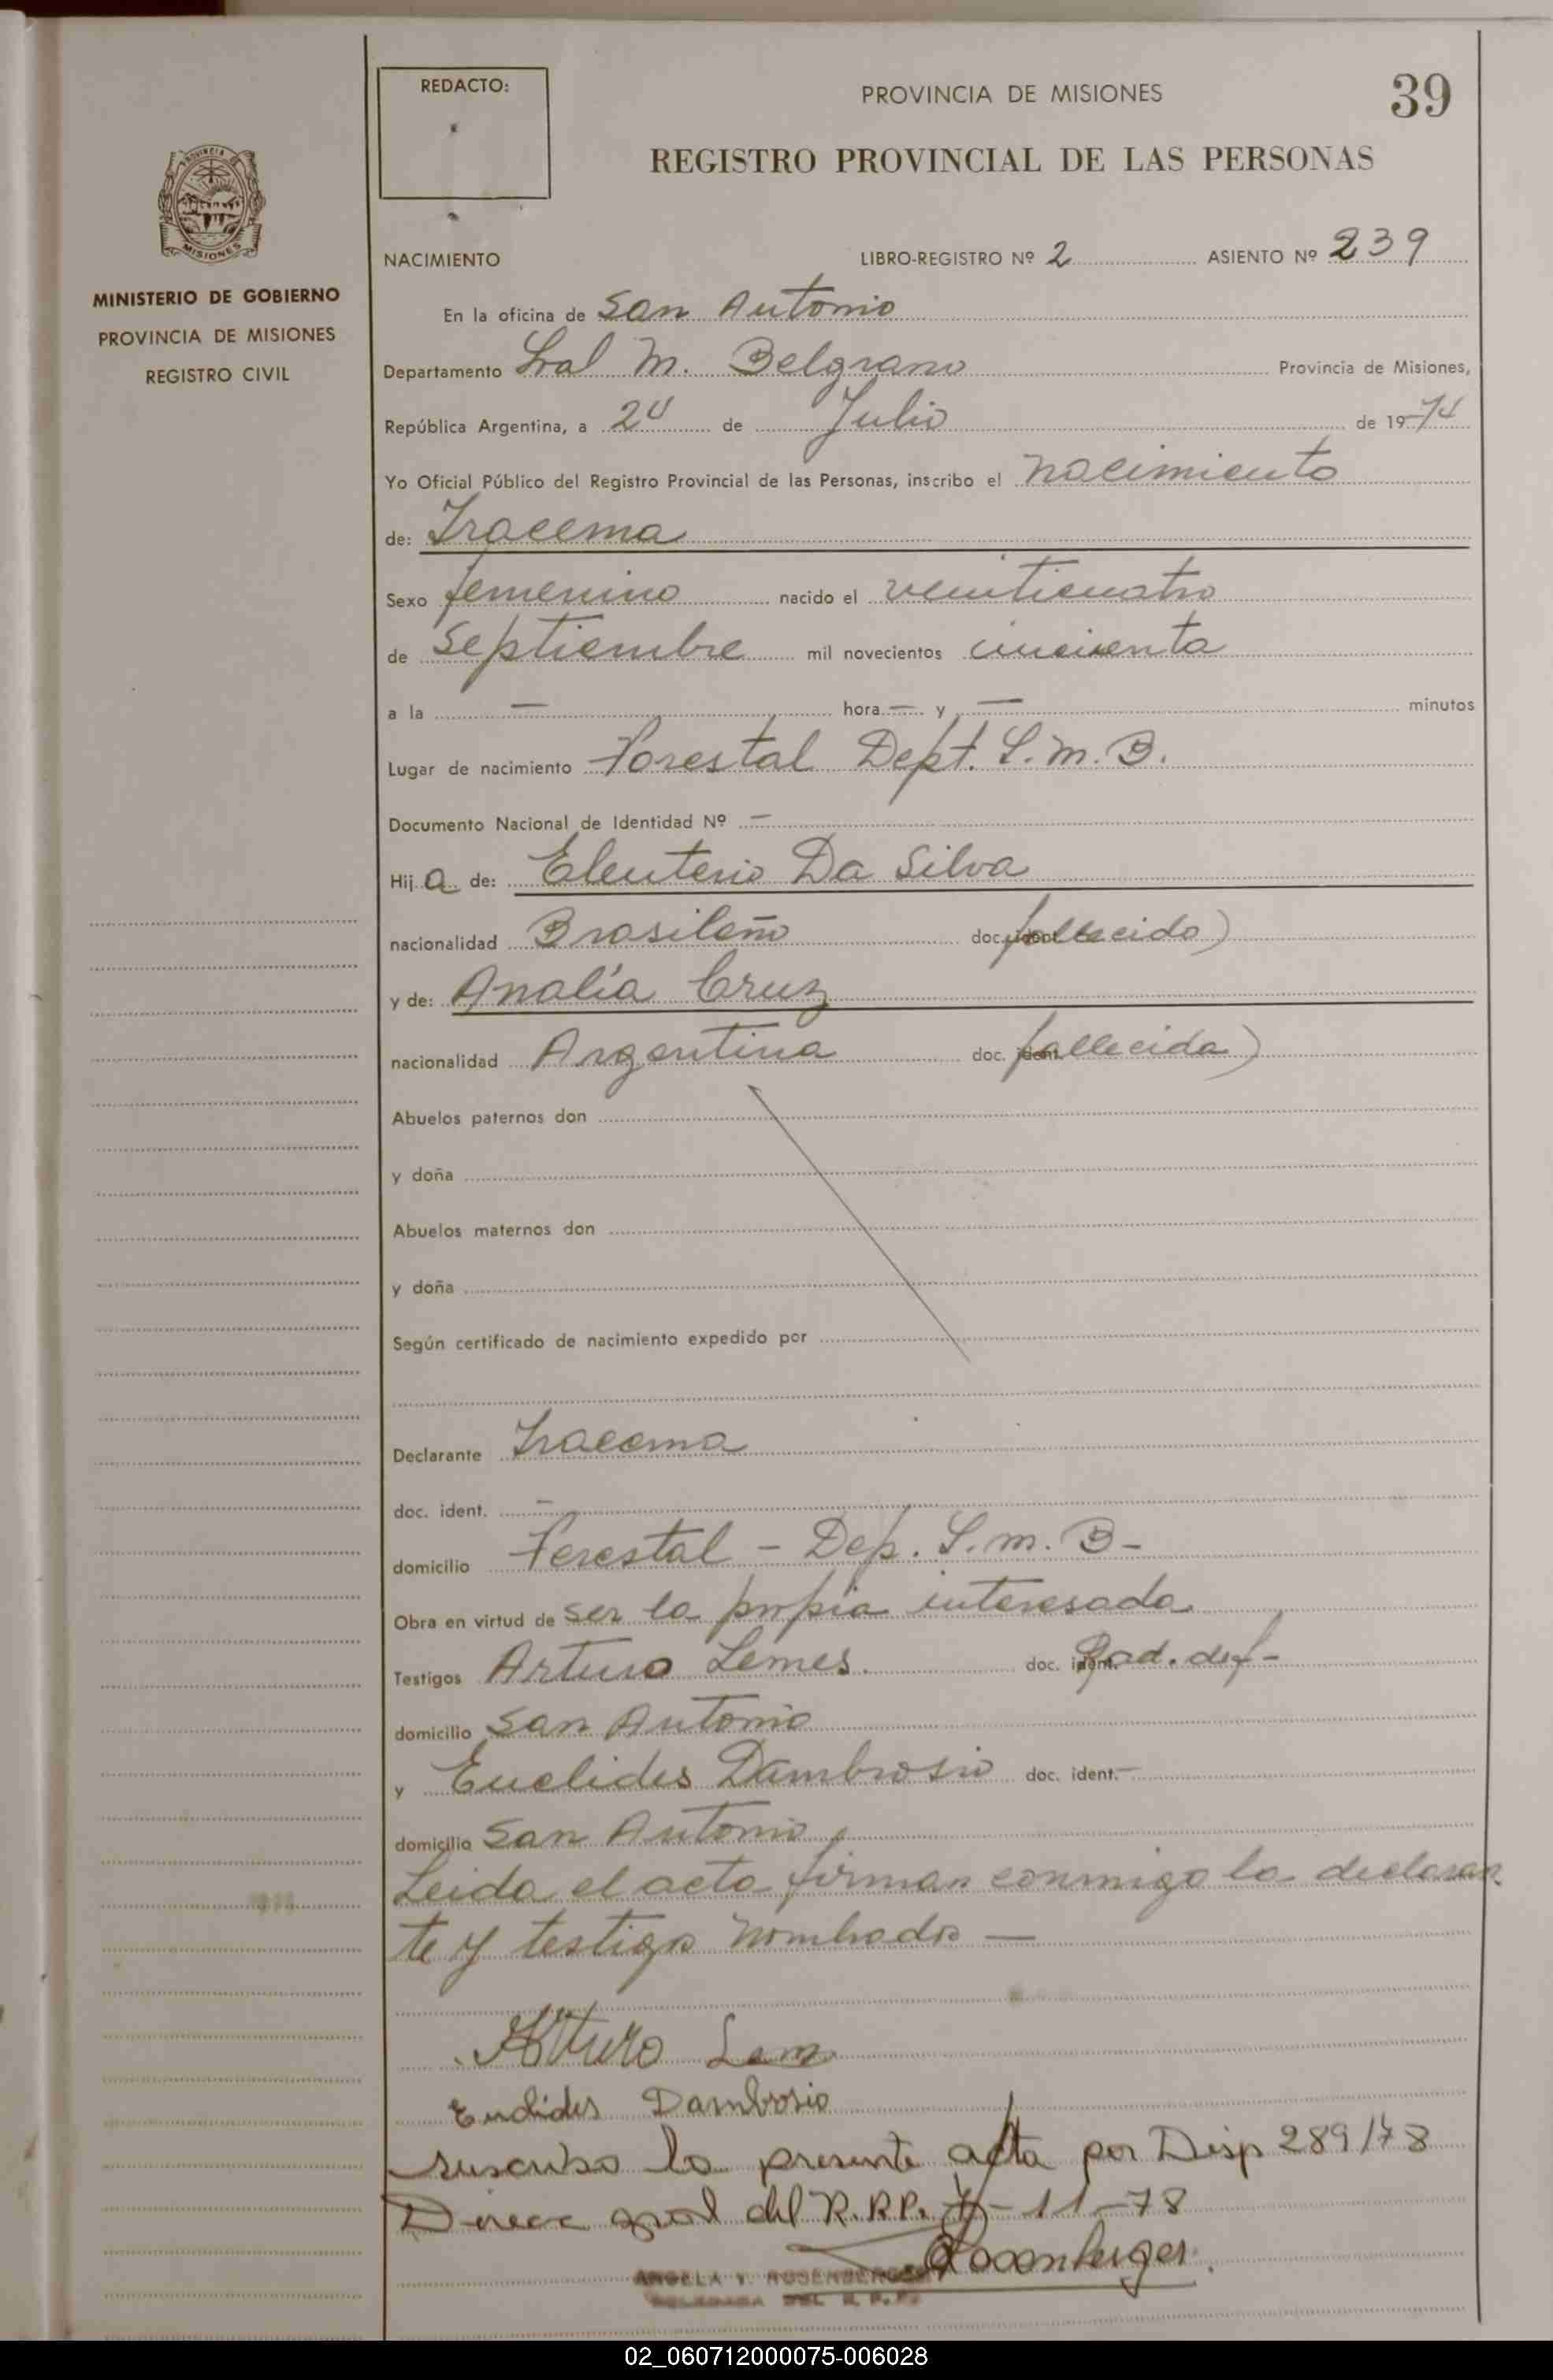 REDACTO:
PROVINCIA DE MISIONES
39
REGISTRO PROVINCIAL DE LAS PERSONAS
PROVINCIA DE
MISIONES
MINISTERIO DE GOBIERNO
PROVINCIA DE MISIONES
REGISTRO CIVIL
NACIMIENTO LIBRO-REGISTRO Nº 2 ASIENTO Nº 239
En la oficina de San Antonio
Departamento Gral M. Belgrano Provincia de Misiones,
República Argentina, a 24 de Julio de 1974
Yo Oficial Público del Registro Provincial de las Personas, inscribo el nacimiento
de: Iracema
Sexo femenino nacido el veinticuatro
de Septiembre mil novecientos cincuenta
a la — hora — y — minutos
Lugar de nacimiento Forestal Dept. G.M.B.
Documento Nacional de Identidad Nº —
Hija de: Eleuterio Da Silva
nacionalidad Brasileño doc. ident. fallecido)
y de: Analía Cruz
nacionalidad Argentina doc. ident. fallecida)
Abuelos paternos don
y doña
Abuelos maternos don
y doña
Según certificado de nacimiento expedido por
Declarante Iracema
doc. ident. —
domicilio Forestal - Dep. G.M.B-
Obra en virtud de ser la propia interesada
Testigos Arturo Lemes doc. ident. Rad. def-
domicilio San Antonio
y Euclides Dambrosio doc. ident. —
domicilio San Antonio
Leida el acta firman conmigo la declaran
te y testigos nombrados —
Arturo Lem
Euclides Dambrosio
suscribo la presente acta por Disp 289/78
Direcc gral del R.R.P. -11-78
Rosenberger
ANGELA Y. ROSENBERGER
DELEGADA DEL R.P.P.
02_060712000075-006028